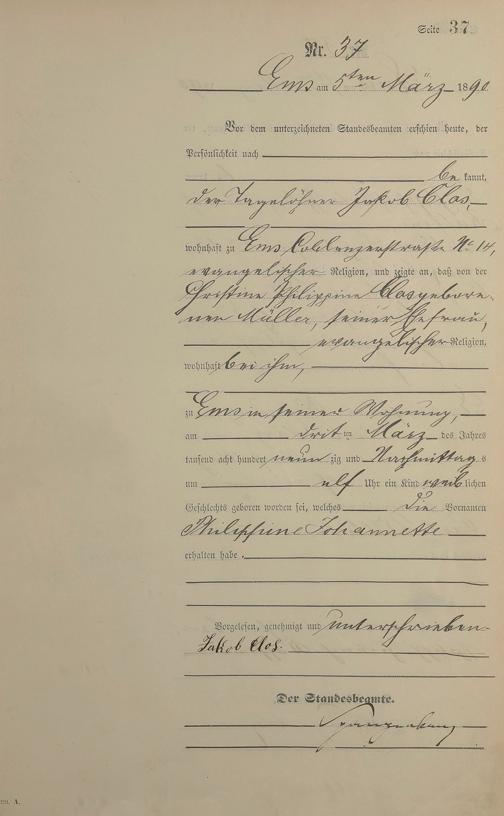 Seite 37
Nr. 37
Ems am 5ten März 1890
Vor dem unterzeichneten Standesbeamten erschien heute, der
Persönlichkeit nach
be kannt,
der Tagelöhner Jakob Clos,
wohnhaft zu Ems Coblenzerstraße No 14,
evangelischer Religion, und zeigte an, daß von der
Christine Philippine Clos gebore-
nen Müller, seiner Ehefrau,
evangelischer Religion,
wohnhaft bei ihm,
zu Ems in seiner Wohnung,
am dritten März des Jahres
tausend acht hundert neunzig und Nachmittags
um elf Uhr ein Kind weiblichen
Geschlechts geboren worden sei, welches die Vornamen
Philippine Johannette
erhalten habe.
Vorgelesen, genehmigt und unterschrieben
Jakob Clos.
Der Standesbeamte.
A.